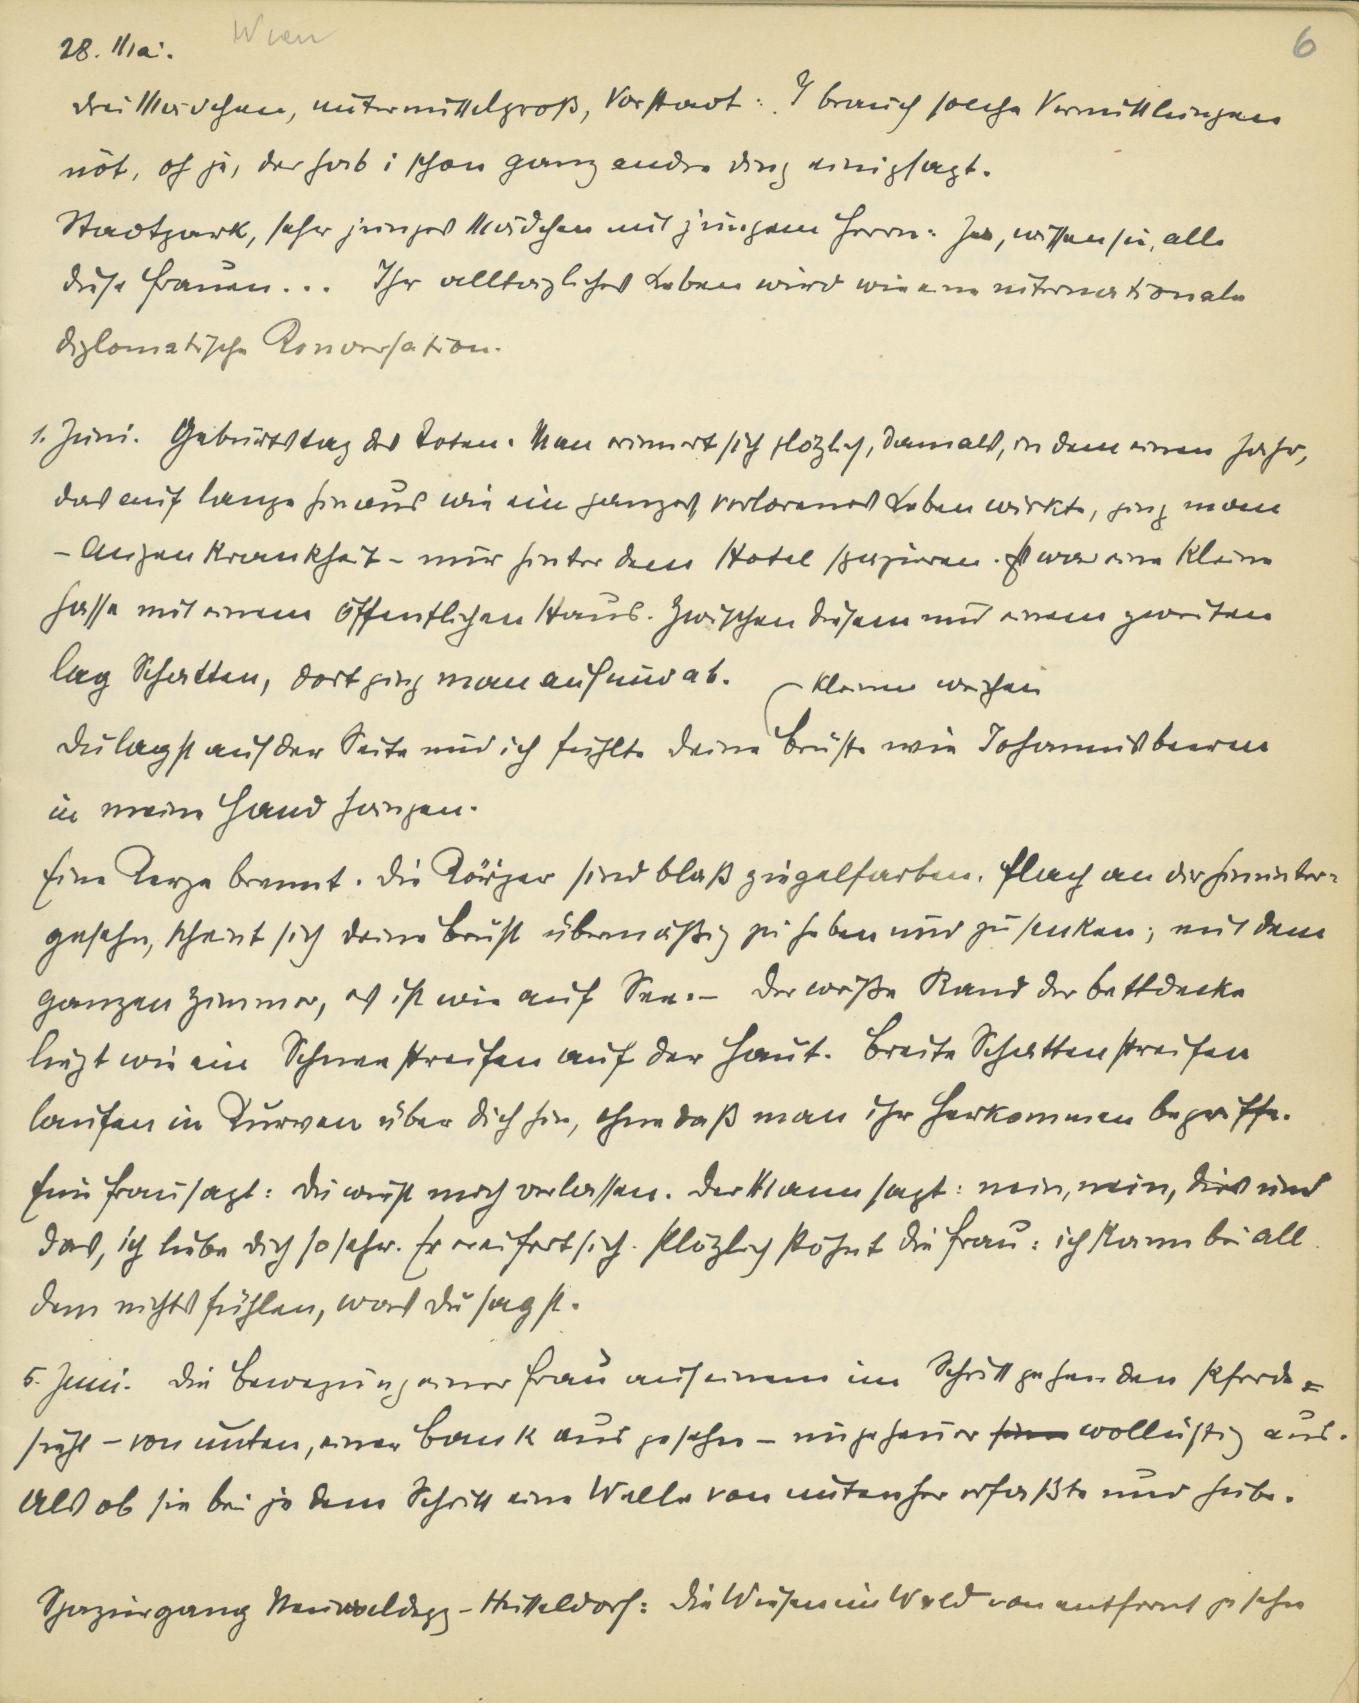 28. Mai. Wien
6
Drei Mädchen, untermittelgroß, Vorstadt: I brauch solche Vermittlungen
nöt, oh je, der hab i schon ganz andre Ding einigsagt.
Stadtpark, sehr junges Mädchen mit jungem Herrn: Ja, wissen sie, alle
diese Frauen... Ihr alltägliches Leben wird wie eine internationale
diplomatische Konversation.
1. Juni. Geburtstag des Toten. Man erinnert sich plözlich, damals, in dem einen Jahr,
das auf lange hinaus wie ein ganzes, verlorenes Leben wirkte, ging man
– Augenkrankheit – nur hinter dem Hotel spazieren. Es war eine kleine
Gasse mit einem öffentlichen Haus. Zwischen diesem und einem zweiten
lag Schatten, dort ging man auf und ab.
kleinen weichen
Du lagst auf der Seite und ich fühlte deine Brüste wie Johannisbeeren
in meine Hand hängen.
Eine Kerze brennt. Die Körper sind blaß ziegelfarben. Flach an dir hinunter=
gesehn, scheint sich deine Brust übermäßig zu heben und zu senken; mit dem
ganzen Zimmer, es ist wie auf See. – Der weiße Rand der Bettdecke
liegt wie ein Schneestreifen auf der Haut. Breite Schattenstreifen
laufen in Kurven über dich hin, ohne daß man ihr Herkommen begriffe.
Eine Frau sagt: Du wirst mich verlassen. Der Mann sagt: nein, nein, dies und
das, ich liebe dich so sehr. Er ereifert sich. Plözlich stöhnt die Frau: ich kann bei all
dem nichts fühlen, was du sagst.
5. Juni. Die Bewegung einer Frau auf einem im Schritt gehenden Pferde=
sieht – von unten, einer Bank aus gesehn – ungeheuer wollüstig aus.
Als ob sie bei jedem Schritt eine Welle von unten her erfaßte und hübe.
Spaziergang Neuwaldegg – Hütteldorf: Die Wiesen im Wald von entfernt gesehn